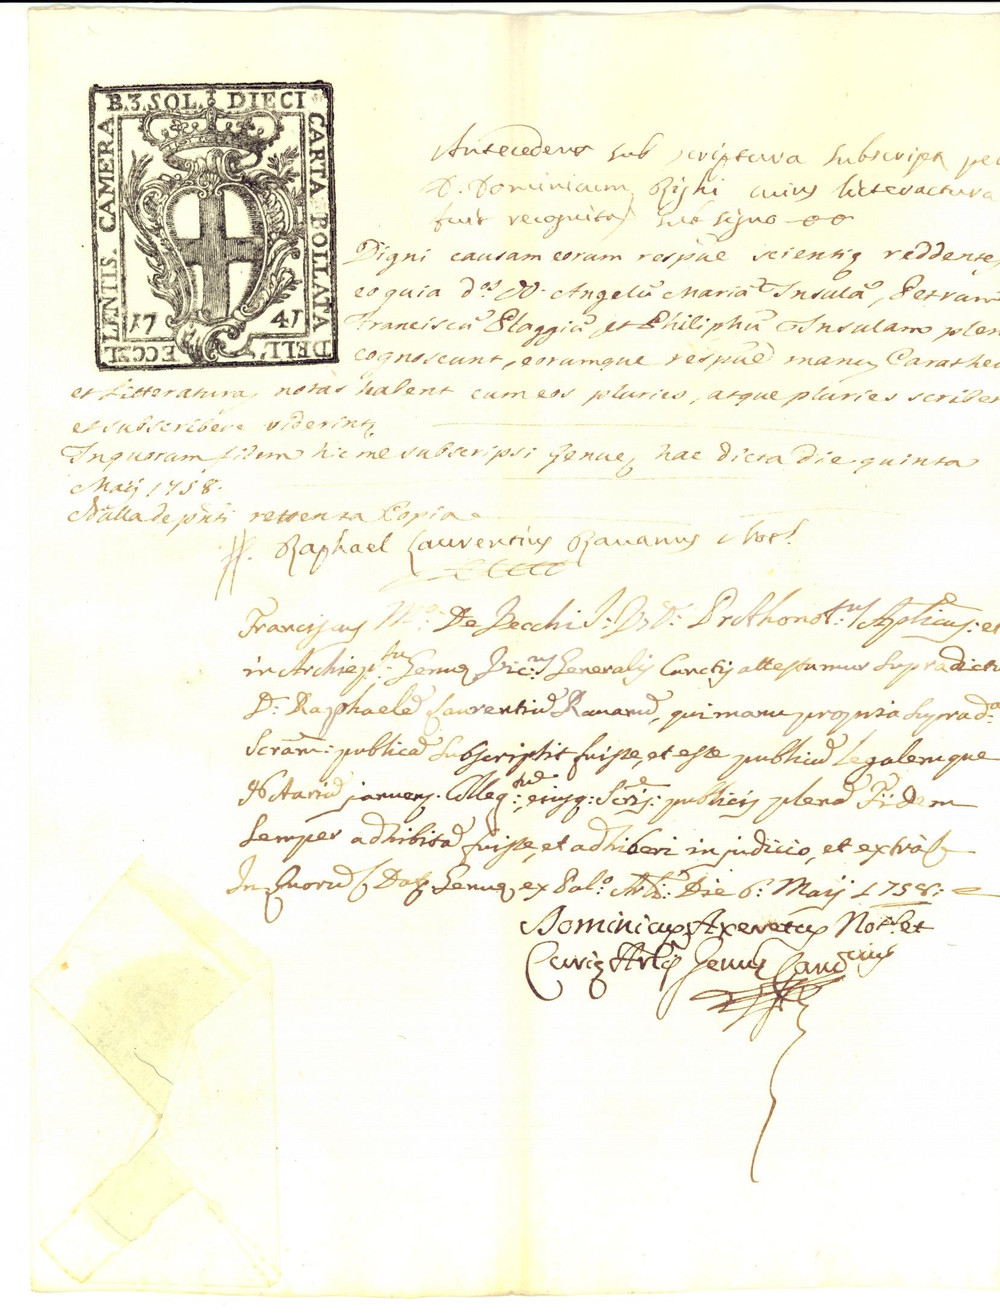 B.3. SOL. DIECI
CARTA BOLLATA
DELL'
ECCEL
LENTIS. CAMERA
17 41
Antecedens sub scriptura subscripta per
D. Dominicum Righi cuius litteractura
fuit recognita sub signo
Digni causam eorum respue scientię reddentes
eo quia d.os Angelũ Mariã Insulã, Petrum
Franciscũ Plaggiũ et Philiphũ Insulam plene
cognoscunt, eorumque respuẽ manus Carathe
et Litteraturas notas habent cum eos pluries, atque pluries scribere
et subscribere viderint
In quorum fidem hic me subscripsi Genuę hac dicta die quinta
Maij 1758.
Nulla de p̃nti retenta Copia
Raphael Laurentius Ravanus Not.s
Franciscus M.a De Vecchi J. U. D. Prothonot.us Aplicus: et
in Archiep.tu Genuę Vic.us Generalis Cunctis attestamur Supradictu
D. Raphaelẽ Laurentiũ Ravanũ, qui manu propria suprad.a
Scrãm: publicã subscripsit fuisse, et esse publicũ Legalemque
Notariũ januens. Colleg.: eiusq: Scris: publicis plenã Fidem
semper adhibitã fuisse, et adhiberi in judicio, et extrà
In Quorũ Dat. Genuę ex Pal.o Die 6.a Maij 1758:
Dominicus Axeretus Not.s et
Curię Genuę Canc.rius